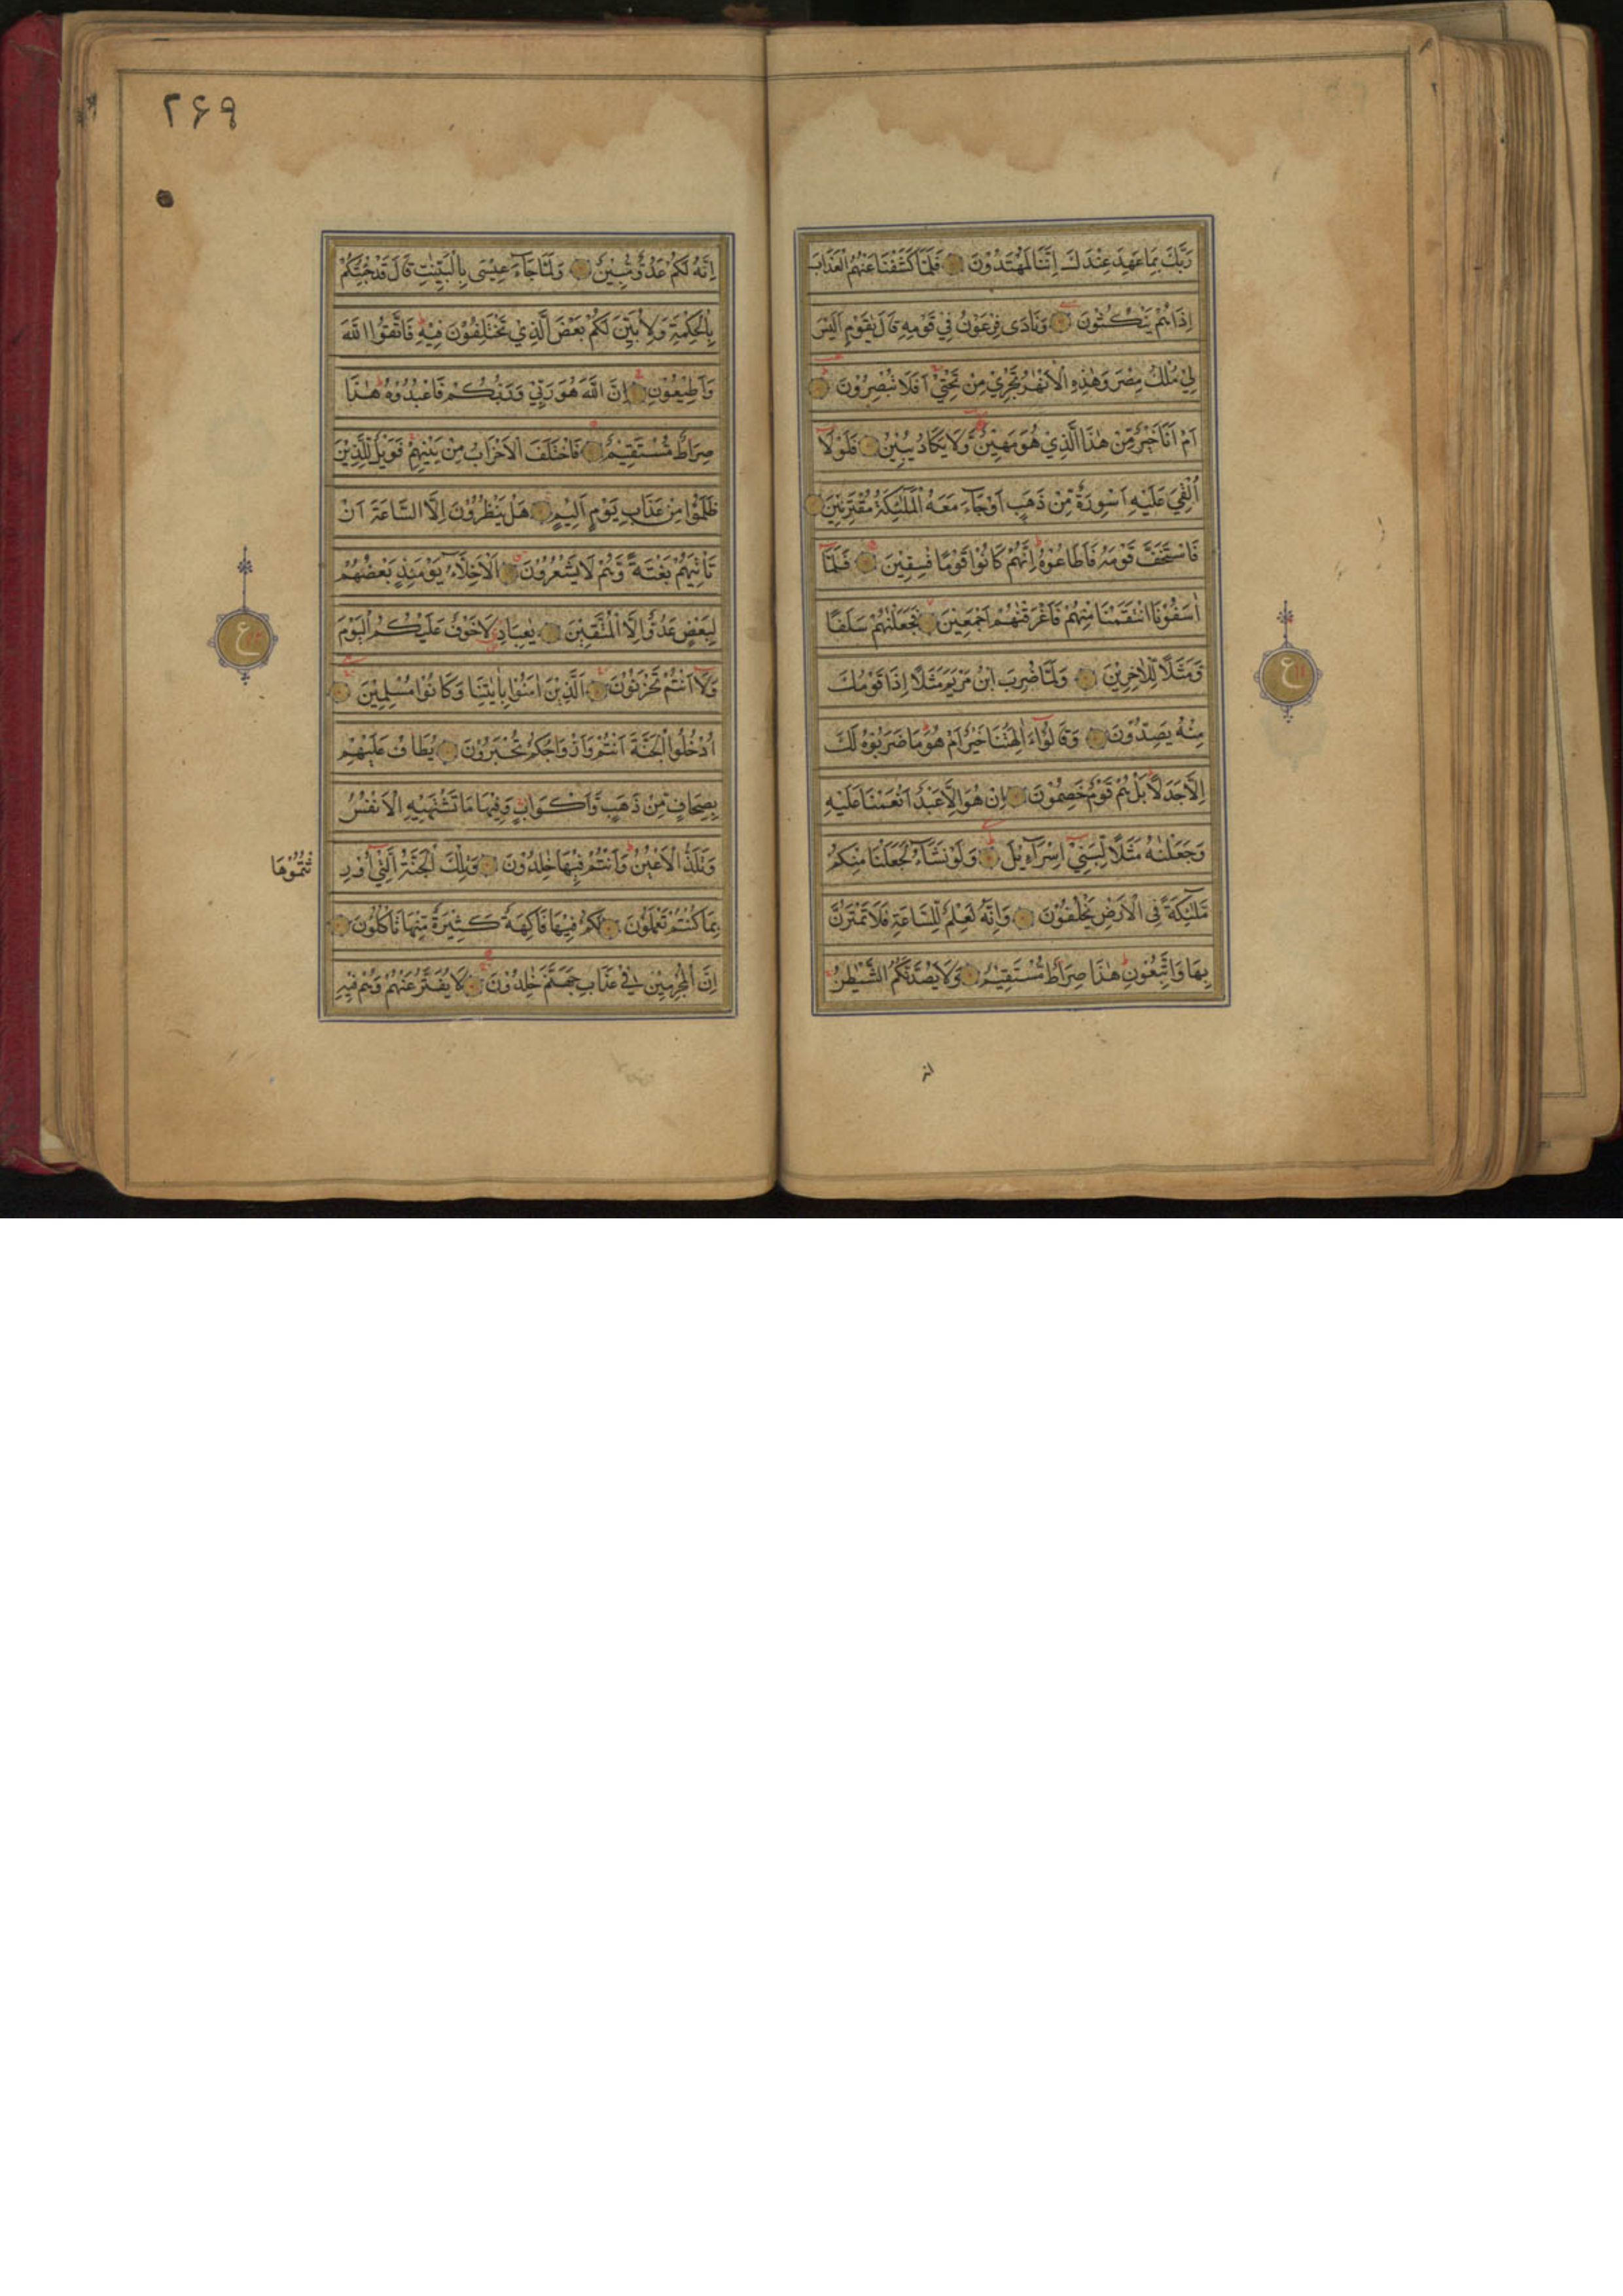 رَبَّكَ بِمَا عَهِدَ عِنْدَكَ اِنَّنَا لَمُهْتَدُوْنَ فَلَمَّا كَشَفْنَا عَنْهُمُ الْعَذَابَ
اِذَا هُمْ يَنْكُثُوْنَ وَنَادَى فِرْعَوْنُ فِيْ قَوْمِهِ قَالَ يٰقَوْمِ اَلَيْسَ
لِيْ مُلْكُ مِصْرَ وَهٰذِهِ الْاَنْهٰرُ تَجْرِيْ مِنْ تَحْتِيْ اَفَلَا تُبْصِرُوْنَ
اَمْ اَنَا خَيْرٌ مِّنْ هٰذَا الَّذِيْ هُوَ مَهِيْنٌ وَّلَا يَكَادُ يُبِيْنُ فَلَوْلَا
اُلْقِيَ عَلَيْهِ اَسْوِرَةٌ مِّنْ ذَهَبٍ اَوْ جَآءَ مَعَهُ الْمَلٰٓئِكَةُ مُقْتَرِنِيْنَ
فَاسْتَخَفَّ قَوْمَهُ فَاَطَاعُوْهُ اِنَّهُمْ كَانُوْا قَوْمًا فٰسِقِيْنَ فَلَمَّآ
اٰسَفُوْنَا انْتَقَمْنَا مِنْهُمْ فَاَغْرَقْنٰهُمْ اَجْمَعِيْنَ فَجَعَلْنٰهُمْ سَلَفًا
وَّمَثَلًا لِّلْاٰخِرِيْنَ وَلَمَّا ضُرِبَ ابْنُ مَرْيَمَ مَثَلًا اِذَا قَوْمُكَ
مِنْهُ يَصِدُّوْنَ وَقَالُوْٓا ءَاٰلِهَتُنَا خَيْرٌ اَمْ هُوَ مَا ضَرَبُوْهُ لَكَ
اِلَّا جَدَلًا بَلْ هُمْ قَوْمٌ خَصِمُوْنَ اِنْ هُوَ اِلَّا عَبْدٌ اَنْعَمْنَا عَلَيْهِ
وَجَعَلْنٰهُ مَثَلًا لِّبَنِيْٓ اِسْرَآءِيْلَ وَلَوْ نَشَآءُ لَجَعَلْنَا مِنْكُمْ
مَّلٰٓئِكَةً فِى الْاَرْضِ يَخْلُفُوْنَ وَاِنَّهُ لَعِلْمٌ لِّلسَّاعَةِ فَلَا تَمْتَرُنَّ
بِهَا وَاتَّبِعُوْنِ هٰذَا صِرَاطٌ مُّسْتَقِيْمٌ وَلَا يَصُدَّنَّكُمُ الشَّيْطٰنُ
انه
ع
۲۶۹
اِنَّهُ لَكُمْ عَدُوٌّ مُّبِيْنٌ وَلَمَّا جَآءَ عِيْسٰى بِالْبَيِّنٰتِ قَالَ قَدْ جِئْتُكُمْ
بِالْحِكْمَةِ وَلِاُبَيِّنَ لَكُمْ بَعْضَ الَّذِيْ تَخْتَلِفُوْنَ فِيْهِ فَاتَّقُوا اللّٰهَ
وَاَطِيْعُوْنِ اِنَّ اللّٰهَ هُوَ رَبِّيْ وَرَبُّكُمْ فَاعْبُدُوْهُ هٰذَا
صِرَاطٌ مُّسْتَقِيْمٌ فَاخْتَلَفَ الْاَحْزَابُ مِنْ بَيْنِهِمْ فَوَيْلٌ لِّلَّذِيْنَ
ظَلَمُوْا مِنْ عَذَابِ يَوْمٍ اَلِيْمٍ هَلْ يَنْظُرُوْنَ اِلَّا السَّاعَةَ اَنْ
تَأْتِيَهُمْ بَغْتَةً وَّهُمْ لَا يَشْعُرُوْنَ اَلْاَخِلَّآءُ يَوْمَئِذٍ بَعْضُهُمْ
لِبَعْضٍ عَدُوٌّ اِلَّا الْمُتَّقِيْنَ يٰعِبَادِ لَا خَوْفٌ عَلَيْكُمُ الْيَوْمَ
وَلَآ اَنْتُمْ تَحْزَنُوْنَ اَلَّذِيْنَ اٰمَنُوْا بِاٰيٰتِنَا وَكَانُوْا مُسْلِمِيْنَ
اُدْخُلُوا الْجَنَّةَ اَنْتُمْ وَاَزْوَاجُكُمْ تُحْبَرُوْنَ يُطَافُ عَلَيْهِمْ
بِصِحَافٍ مِّنْ ذَهَبٍ وَّاَكْوَابٍ وَفِيْهَا مَا تَشْتَهِيْهِ الْاَنْفُسُ
وَتَلَذُّ الْاَعْيُنُ وَاَنْتُمْ فِيْهَا خٰلِدُوْنَ وَتِلْكَ الْجَنَّةُ الَّتِيْٓ اُوْرِ
ثْتُمُوْهَا
بِمَا كُنْتُمْ تَعْمَلُوْنَ لَكُمْ فِيْهَا فَاكِهَةٌ كَثِيْرَةٌ مِّنْهَا تَاْكُلُوْنَ
اِنَّ الْمُجْرِمِيْنَ فِيْ عَذَابِ جَهَنَّمَ خٰلِدُوْنَ لَا يُفَتَّرُ عَنْهُمْ وَهُمْ فِيْهِ
ع